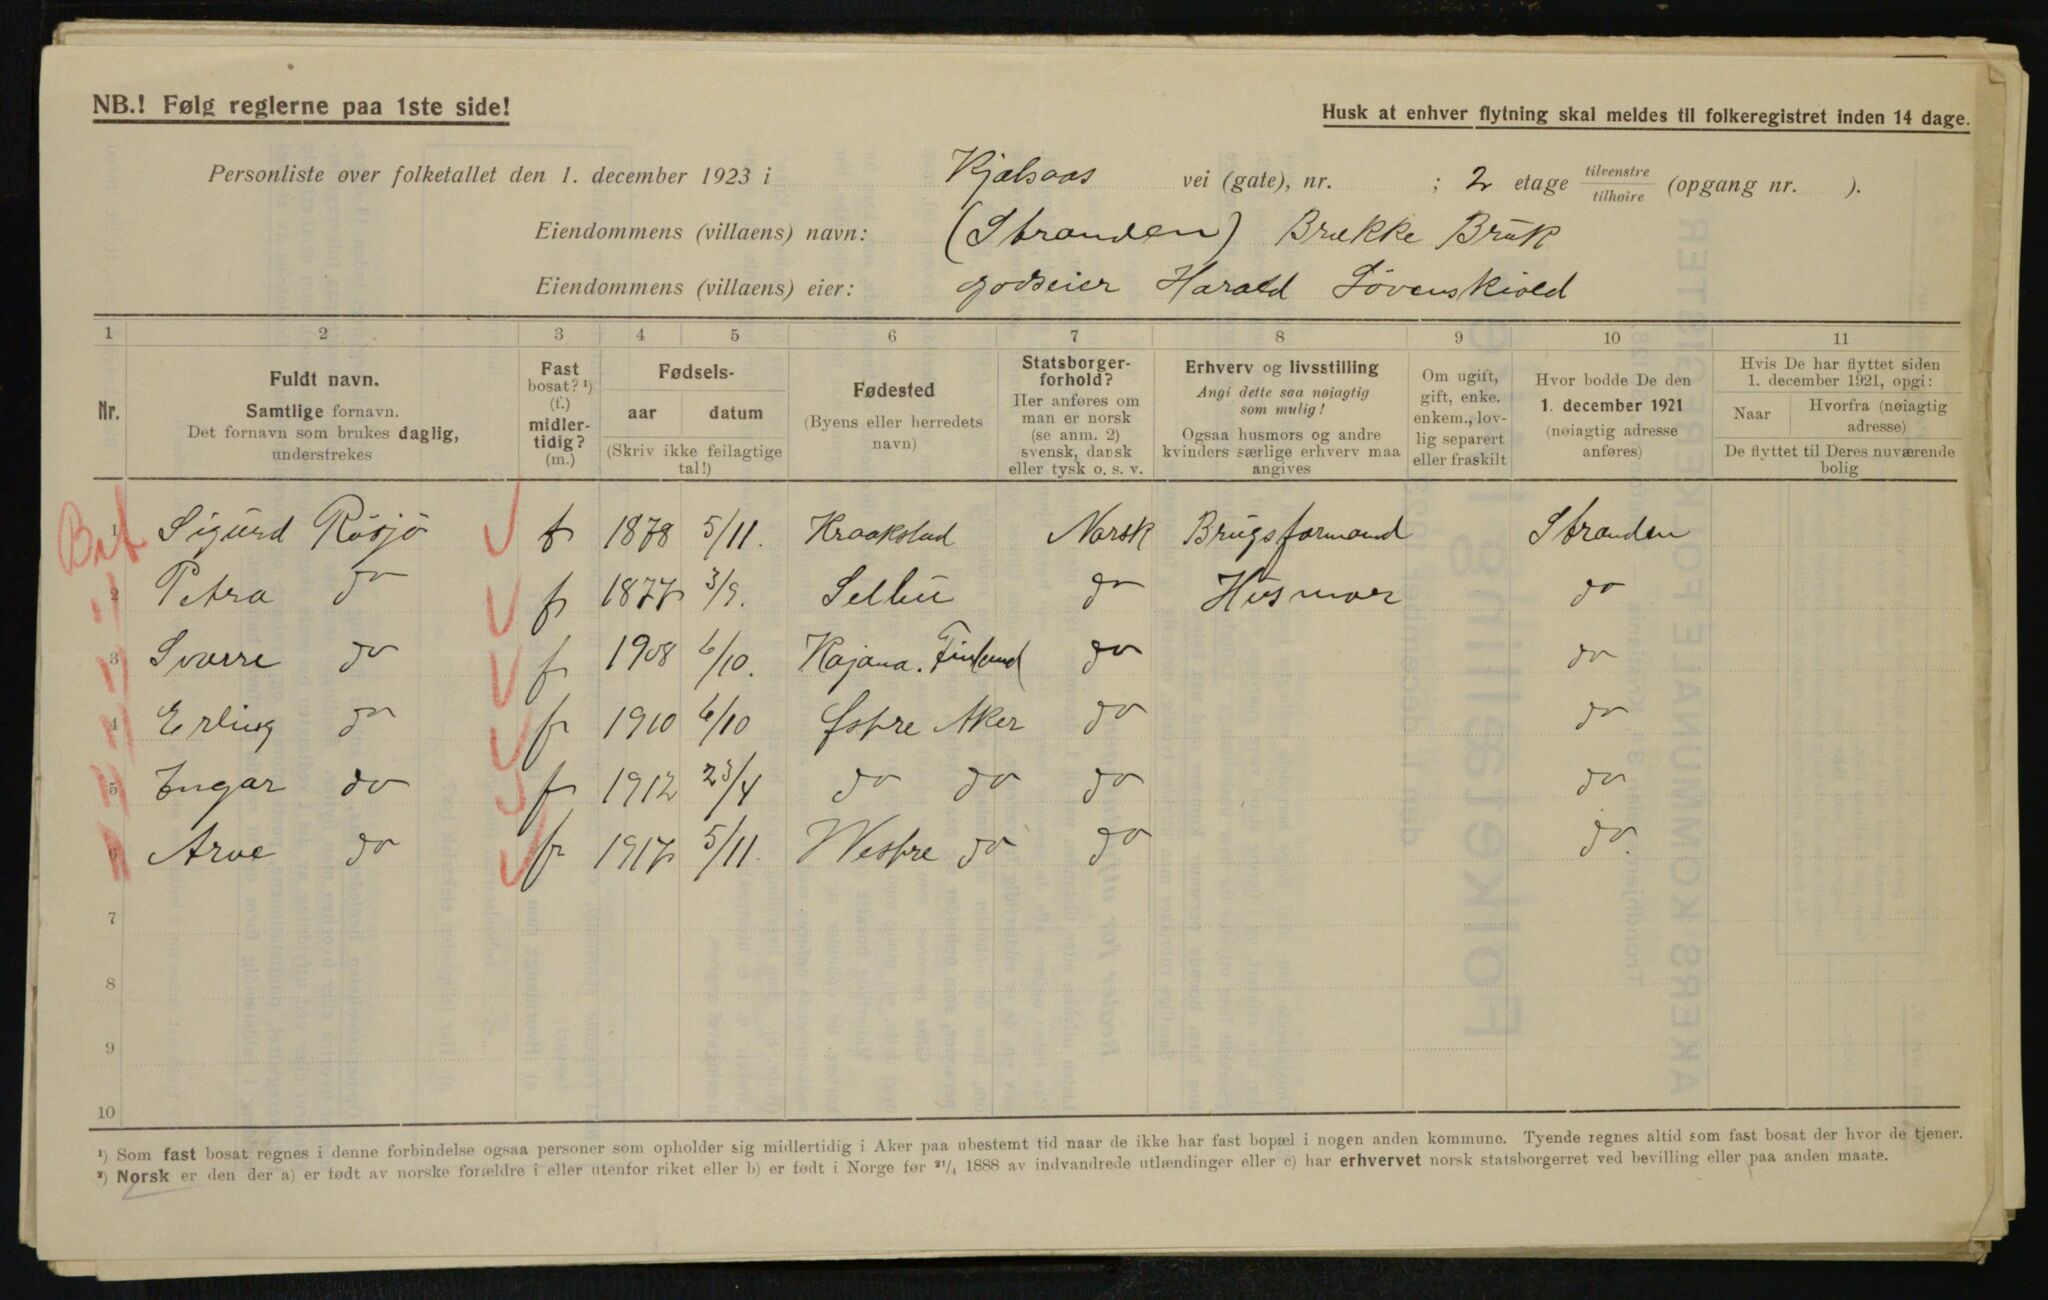 NB.! Følg reglerne paa 1ste side!
Husk at enhver flytning skal meldes til folkeregistret inden 14 dage.
Personliste over folketallet den 1. december 1923 i Kjelsaas vei (gate), nr. ; 2 etage tilvenstre / tilhøire (opgang nr. ).
Eiendommens (villaens) navn: (Stranden) Brække Brŭk
Eiendommens (villaens) eier: godseier Harald Løvenskiold
1 2 3 4 5 6 7 8 9 10 11
Nr.
Fuldt navn.
Samtlige fornavn.
Det fornavn som brukes daglig,
understrekes
Fast
bosat? ¹)
(f.)
midler-
tidig?
(m.)
Fødsels-
aar datum
(Skriv ikke feilagtige
tal!)
Fødested
(Byens eller herredets
navn)
Statsborger-
forhold?
Her anføres om
man er norsk
(se anm. 2)
svensk, dansk
eller tysk o. s. v.
Erhverv og livsstilling
Angi dette saa nøiagtig
som mulig!
Ogsaa husmors og andre
kvinders særlige erhverv maa
angives
Om ugift,
gift, enke.
enkem., lov-
lig separert
eller fraskilt
Hvor bodde De den
1. december 1921
(nøiagtig adresse
anføres)
Hvis De har flyttet siden
1. december 1921, opgi:
Naar Hvorfra (nøiagtig
adresse)
De flyttet til Deres nuværende
bolig
1 Sigurd Røsjø f 1878 5/11. Kraakstad Norsk Brŭgsformand Stranden
2 Petra do f 1877 3/9. Selbŭ do Hŭsmor do
3 Sverre do f 1908 6/10. Kajana. Finland do do
4 Erling do f 1910 6/10 Østre Aker do do
5 Ingar do f 1912 23/4 do do do do
6 Arve do f 1917 5/11. Westre do do do.
7
8
9
10
¹) Som fast bosat regnes i denne forbindelse ogsaa personer som opholder sig midlertidig i Aker paa ubestemt tid naar de ikke har fast bopæl i nogen anden kommune. Tyende regnes altid som fast bosat der hvor de tjener.
²) Norsk er den der a) er født av norske forældre i eller utenfor riket eller b) er født i Norge før ²¹/₄ 1888 av indvandrede utlændinger eller c) har erhvervet norsk statsborgerret ved bevilling eller paa anden maate.